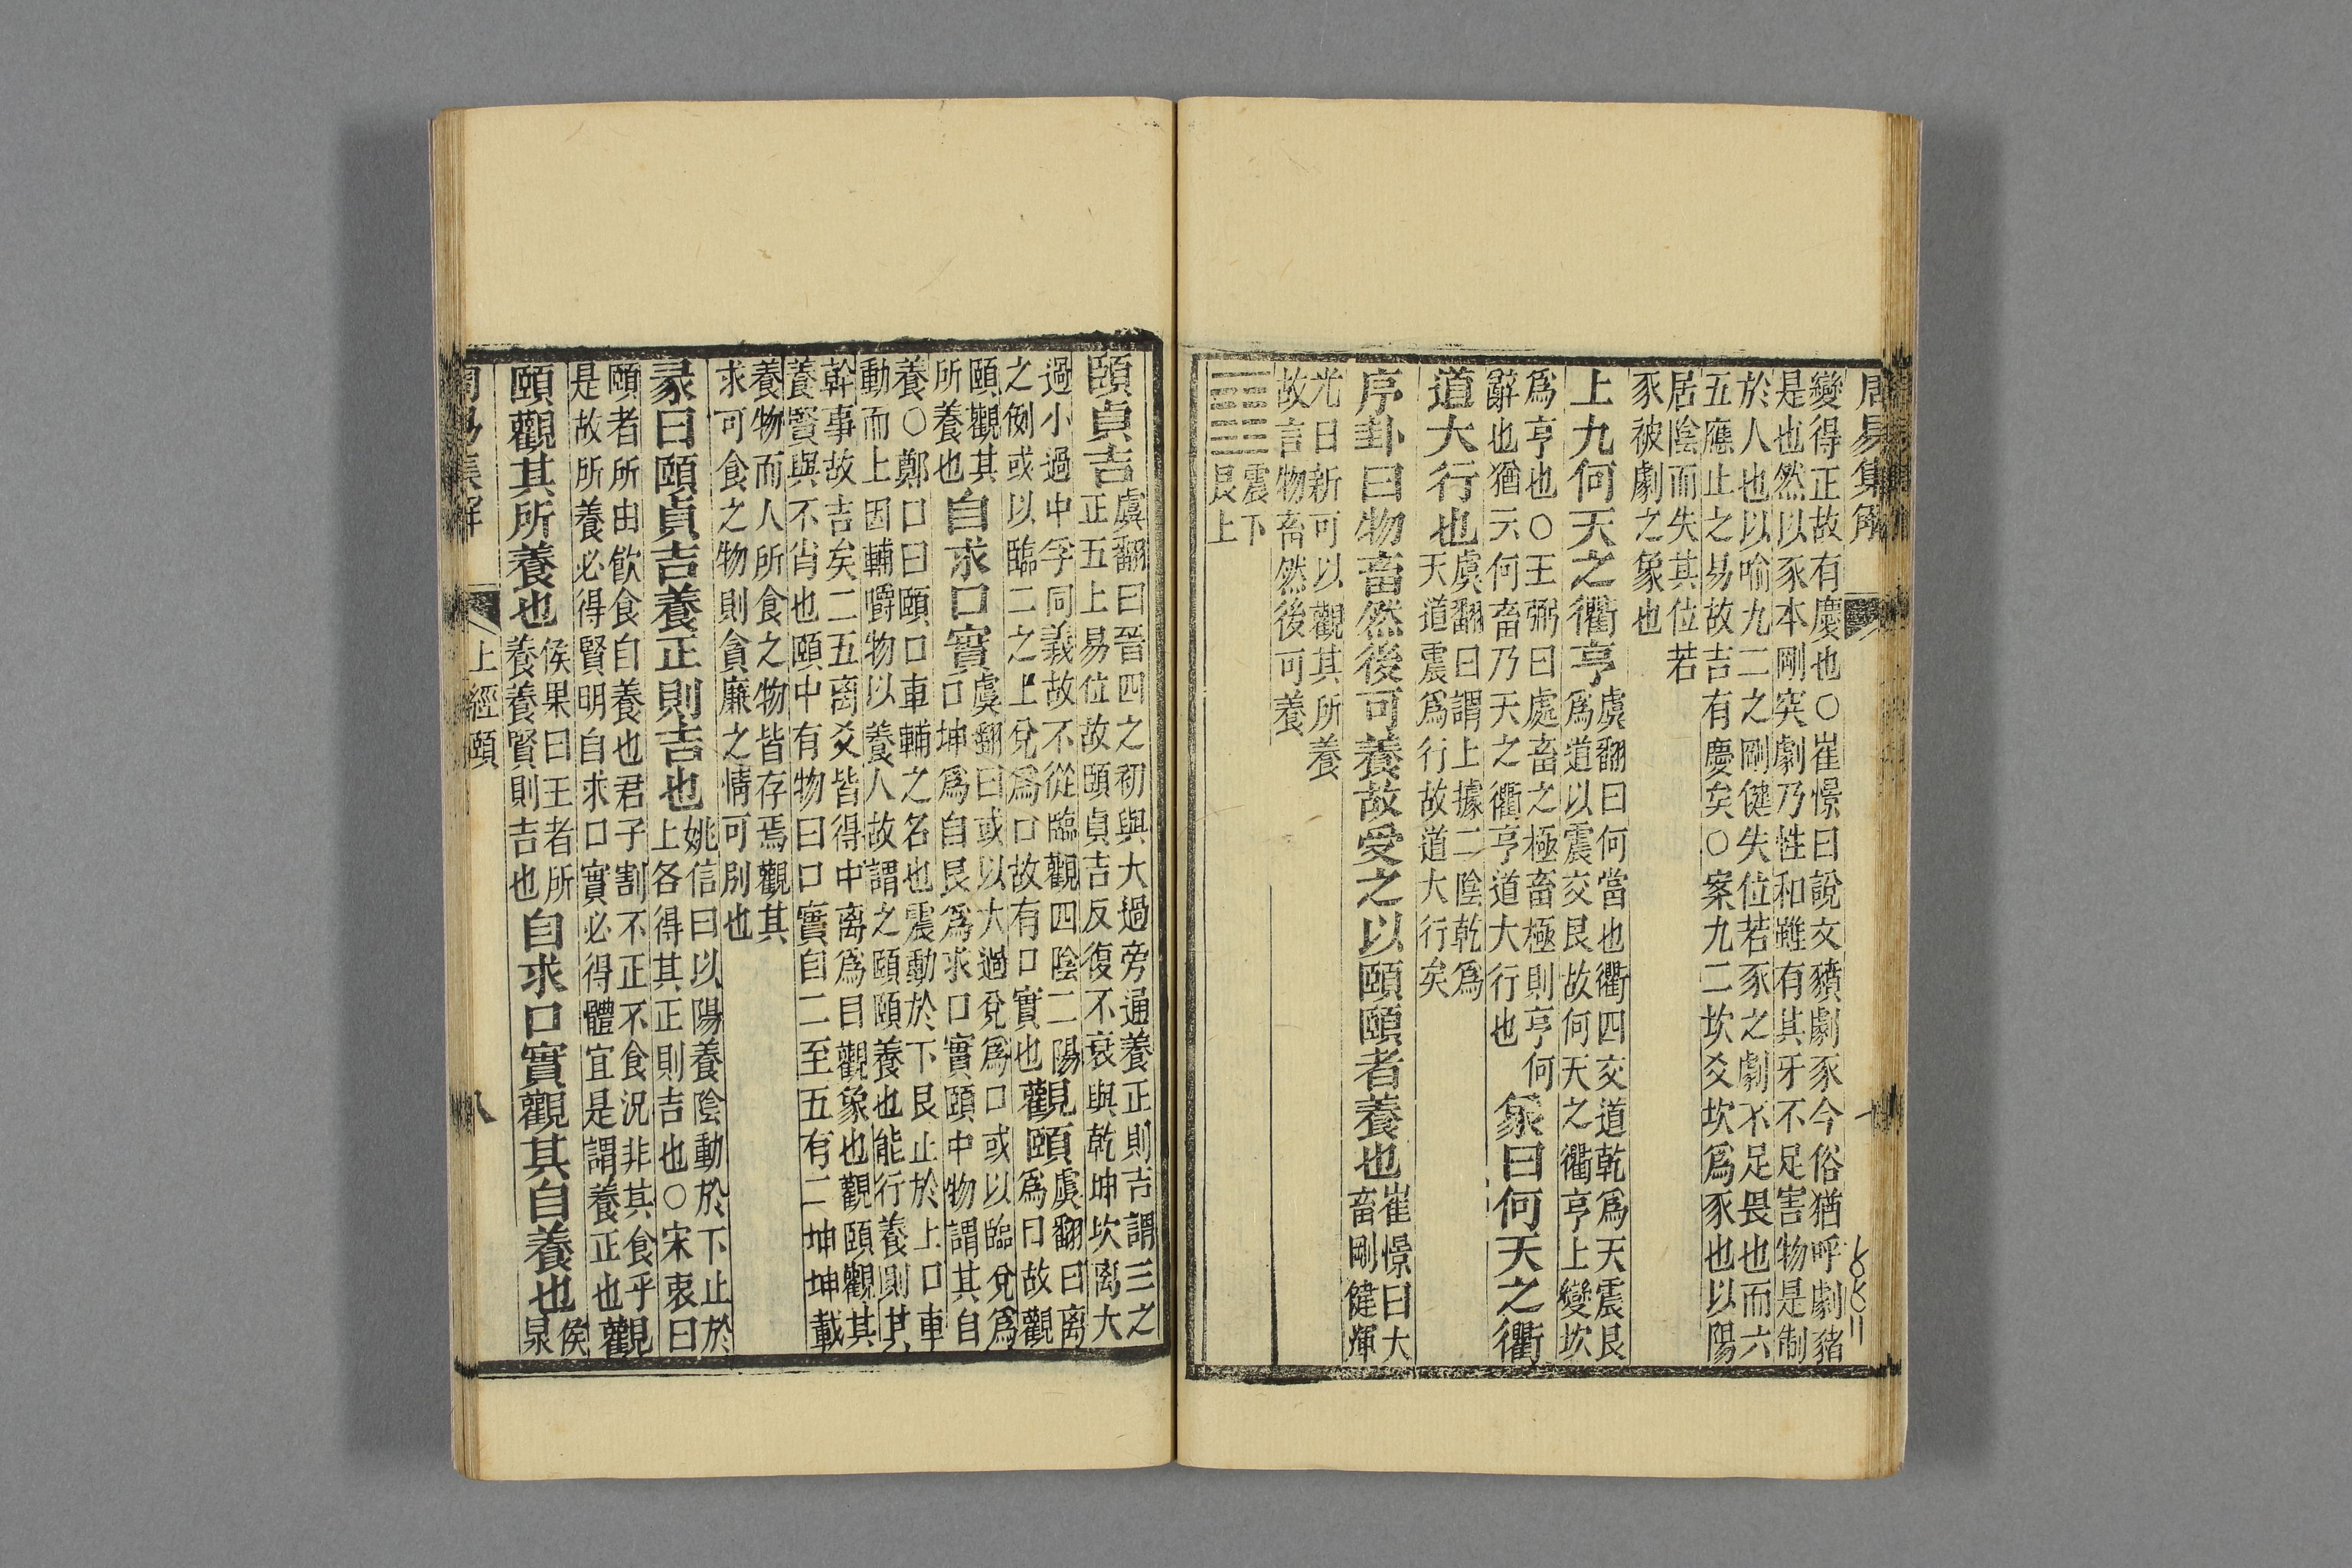 變得正故有慶也○崔憬曰說文豶劇豕今俗猶呼劇豬
是也然以豕本剛突劇乃性和雖有其牙不足害物是制
於人也以喻九二之剛健失位若豕之劇不足畏也而六
五應止之易故吉有慶矣○案九二坎爻坎爲豕也以陽
居陰而失其位若
豕被劇之象也
上九何天之衢亨
虞翻曰何當也衢四交道乾爲天震艮
爲道以震交艮故何天之衢亨上變坎
爲亨也○王弼曰處畜之極畜極則亨何
辭也猶云何畜乃天之衢亨道大行也
象曰何天之衢
道大行也
虞翻曰謂上據二陰乾爲
天道震爲行故道大行矣
序卦曰物畜然後可養故受之以頤頤者養也
崔憬曰大
畜剛健輝
光日新可以觀其所養
故言物畜然後可養
震下
艮上
頤貞吉
虞翻曰晉四之初與大過旁通養正則吉謂三之
正五上易位故頤貞吉反復不衰與乾坤坎离大
過小過中孚同義故不從臨觀四陰二陽
之例或以臨二之上兌爲口故有口實也
觀頤
虞翻曰离
爲目故觀
頤觀其
所養也
自求口實
虞翻曰或以大過兌爲口或以臨兌爲
口坤爲自艮爲求口實頤中物謂其自
養○鄭口曰頤口車輔之名也震動於下艮止於上口車
動而上因輔嚼物以養人故謂之頤頤養也能行養則其
幹事故吉矣二五离爻皆得中离爲目觀象也觀頤觀其
養賢與不肖也頤中有物曰口實自二至五有二坤坤載
養物而人所食之物皆存焉觀其
求可食之物則貪廉之情可別也
彖曰頤貞吉養正則吉也
姚信曰以陽養陰動於下止於
上各得其正則吉也○宋衷曰
頤者所由飲食自養也君子割不正不食況非其食乎
是故所養必得賢明自求口實必得體宜是謂養正也
觀
頤觀其所養也
侯果曰王者所
養養賢則吉也
自求口實觀其自養也
侯
果
上經頤
八